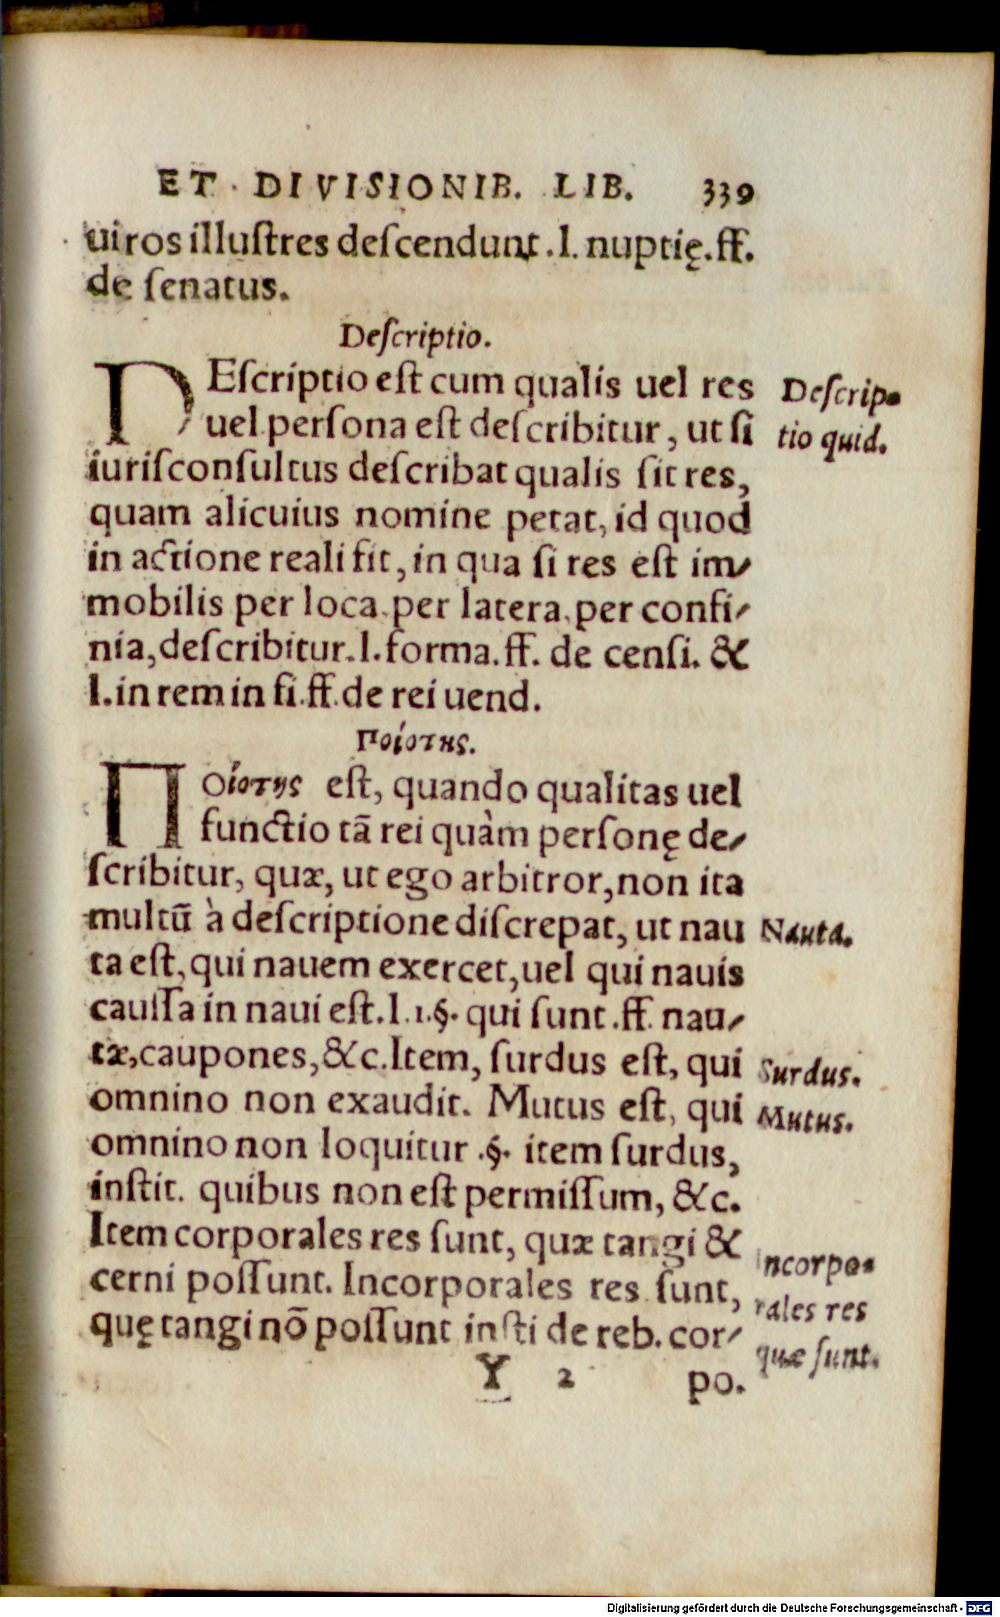 ET DIVISIONIB. LIB. 339
uiros illuſtres deſcendunt. l. nuptię. ff.
de ſenatus.
Deſcriptio.
DEſcriptio est cum qualis uel res
uel perſona eſt deſcribitur, ut ſi
iuriſconſultus deſcribat qualis ſit res,
quam alicuius nomine petat, id quod
in actione reali fit, in qua ſi res eſt im-
mobilis per loca, per latera, per confi-
nia, deſcribitur. l. forma. ff. de cenſi. &
l. in rem in fi. ff. de rei uend.
Descrip-
tio quid.
Ποίοτης.
Ποίοτης eſt, quando qualitas uel
functio tā rei quàm perſonę de-
ſcribitur, quæ, ut ego arbitror, non ita
multū à deſcriptione diſcrepat, ut nau
ta eſt, qui nauem exercet, uel qui nauis
cauſſa in naui eſt. l. 1. §. qui ſunt. ff. nau-
tæ, caupones, &c. Item, ſurdus eſt, qui
omnino non exaudit. Mutus eſt, qui
omnino non loquitur. §. item ſurdus,
inſtit. quibus non eſt permiſſum, &c.
Item corporales res ſunt, quæ tangi &
cerni poſſunt. Incorporales res ſunt,
quę tangi nō poſſunt inſti de reb. cor-
Nauta.
Surdus.
Mutus.
Incorpo-
rales res
quæ ſunt.
Y 2 po.
Digitalisierung gefördert durch die Deutsche Forschungsgemeinschaft - DFG